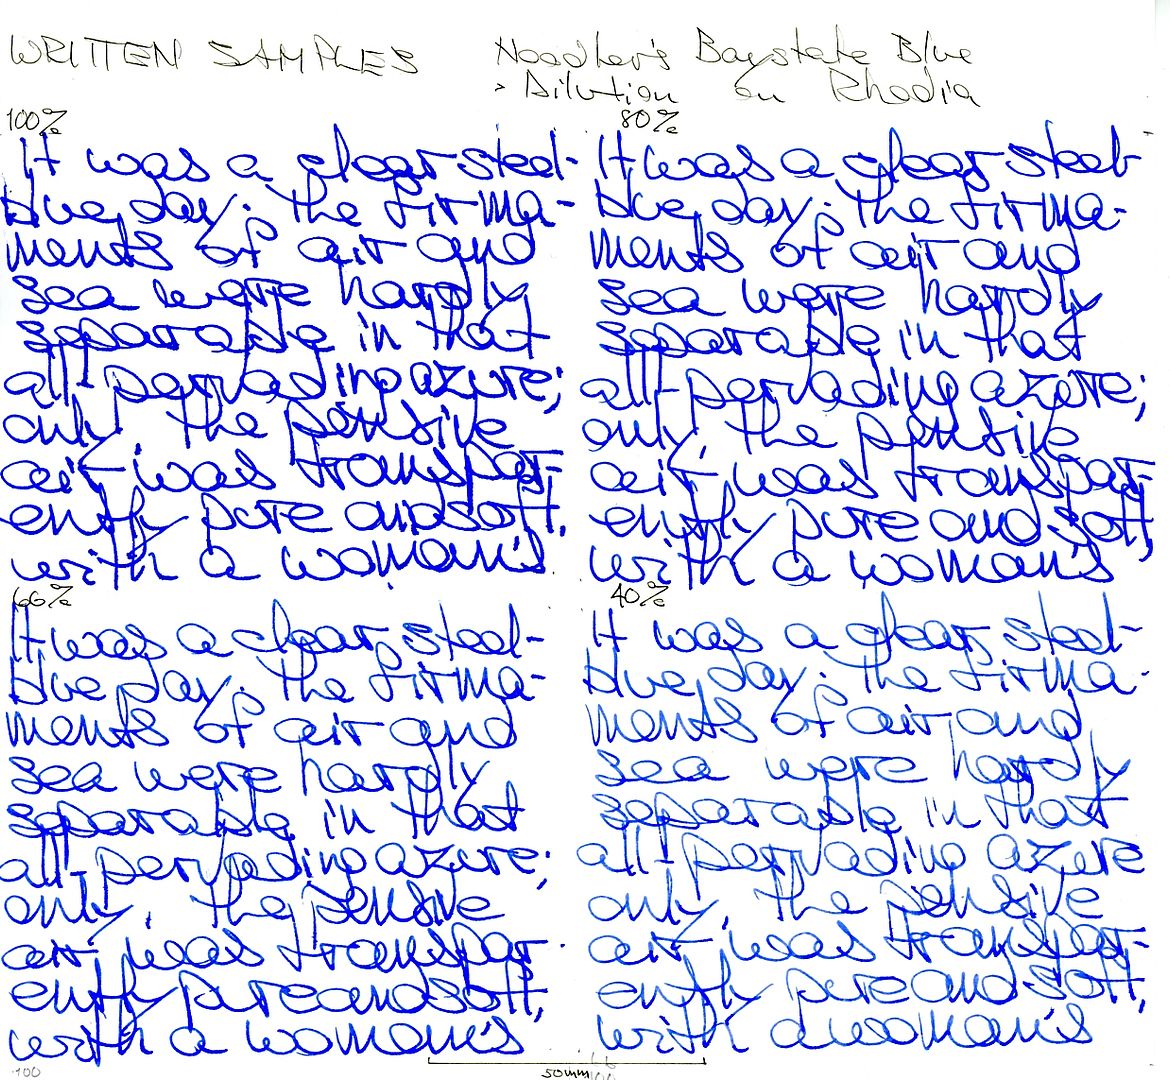 WRITTEN SAMPLES
Noodler's Baystate Blue
> Dilution on Rhodia
100%
It was a clear steel-
blue day. The firma-
ments of air and
sea were hardly
separable in that
all-pervading azure;
only, the pensive
air was transpar-
ently pure and soft,
with a woman's
80%
It was a clear steel-
blue day. The firma-
ments of air and
sea were hardly
separable in that
all-pervading azure;
only, the pensive
air was transpar-
ently pure and soft,
with a woman's
66%
It was a clear steel-
blue day. The firma-
ments of air and
sea were hardly
separable in that
all-pervading azure;
only, the pensive
air was transpar-
ently pure and soft,
with a woman's
40%
It was a clear steel-
blue day. The firma-
ments of air and
sea were hardly
separable in that
all-pervading azure
only, the pensive
air was transpar-
ently pure and soft,
with a woman's
100
50mm